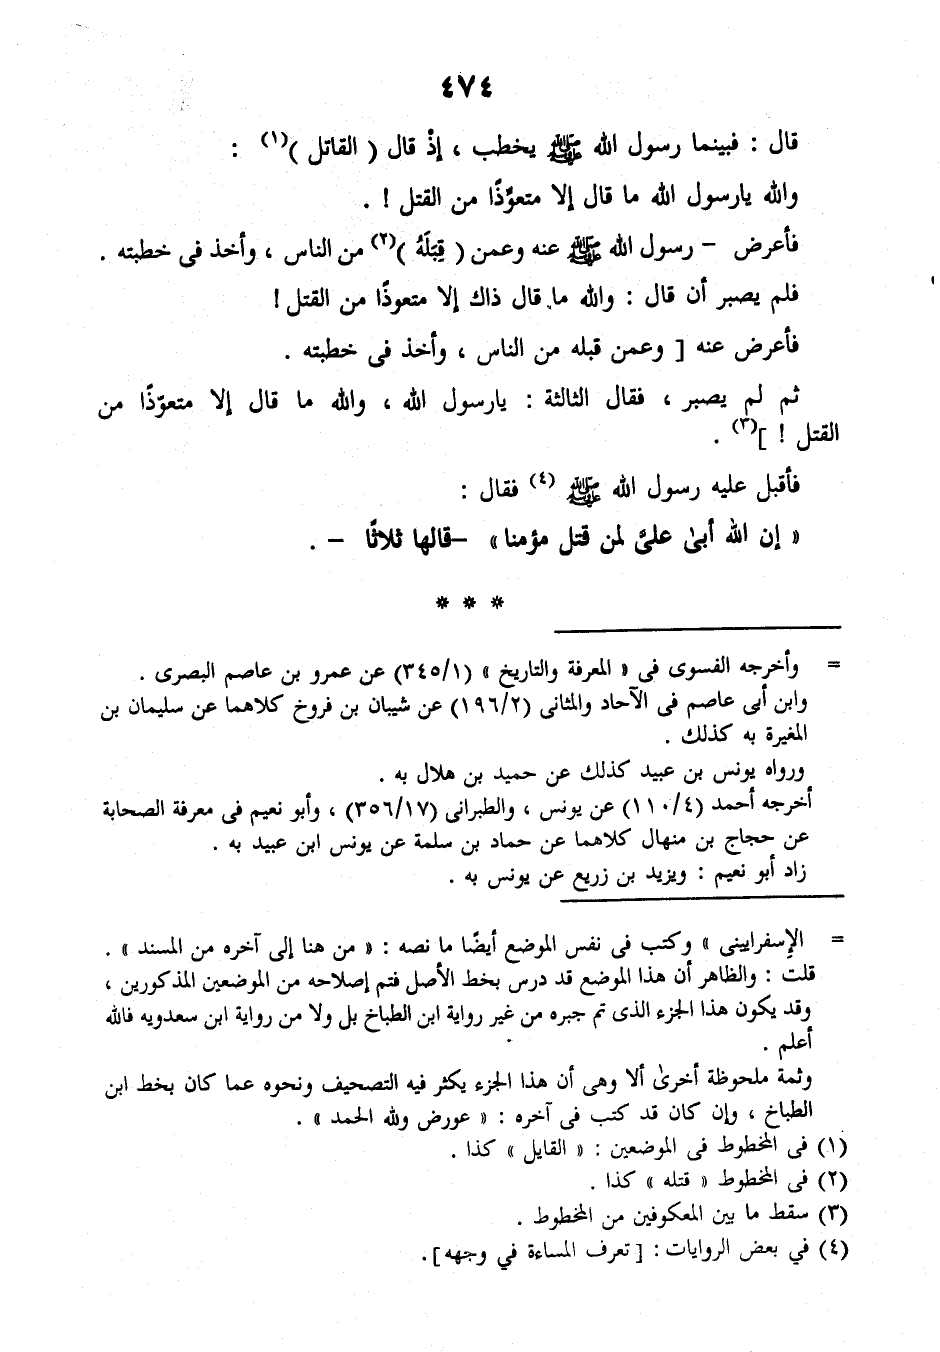 ٤٧٤
قال : فبينما رسول الله ﷺ يخطب ، إذْ قال ( القاتل )(١) :
والله يارسول الله ما قال إلا متعوِّذًا من القتل ! .
فأعرض – رسول الله ﷺ عنه وعمن ( قِبَلَهُ )(٢) من الناس ، وأخذ فى خطبته .
فلم يصبر أن قال : والله ما قال ذاك إلا متعوذًا من القتل !
فأعرض عنه [ وعمن قبله من الناس ، وأخذ فى خطبته .
ثم لم يصبر ، فقال الثالثة : يارسول الله ، والله ما قال إلا متعوّذًا من
القتل ! ](٣) .
فأقبل عليه رسول الله ﷺ (٤) فقال :
« إن الله أبىٰ علىَّ لمن قتل مؤمنا » –قالها ثلاثًا – .
* * *
= وأخرجه الفسوى فى « المعرفة والتاريخ » (٣٤٥/١) عن عمرو بن عاصم البصرى .
وابن أبى عاصم فى الآحاد والمثانى (١٩٦/٢) عن شيبان بن فروخ كلاهما عن سليمان بن
المغيرة به كذلك .
ورواه يونس بن عبيد كذلك عن حميد بن هلال به .
أخرجه أحمد (١١٠/٤) عن يونس ، والطبرانى (٣٥٦/١٧) ، وأبو نعيم فى معرفة الصحابة
عن حجاج بن منهال كلاهما عن حماد بن سلمة عن يونس ابن عبيد به .
زاد أبو نعيم : ويزيد بن زريع عن يونس به .
= الإسفرايينى » وكتب فى نفس الموضع أيضًا ما نصه : « من هنا إلى آخره من المسند » .
قلت : والظاهر أن هذا الموضع قد درس بخط الأصل فتم إصلاحه من الموضعين المذكورين ،
وقد يكون هذا الجزء الذى تم جبره من غير رواية ابن الطباخ بل ولا من رواية ابن سعدويه فالله
أعلم .
وثمة ملحوظة أخرىٰ ألا وهى أن هذا الجزء يكثر فيه التصحيف ونحوه عما كان بخط ابن
الطباخ ، وإن كان قد كتب فى آخره : « عورض ولله الحمد » .
(١) فى المخطوط فى الموضعين : « القايل » كذا .
(٢) فى المخطوط « قتله » كذا .
(٣) سقط ما بين المعكوفين من المخطوط .
(٤) في بعض الروايات : [تعرف المساءة في وجهه].